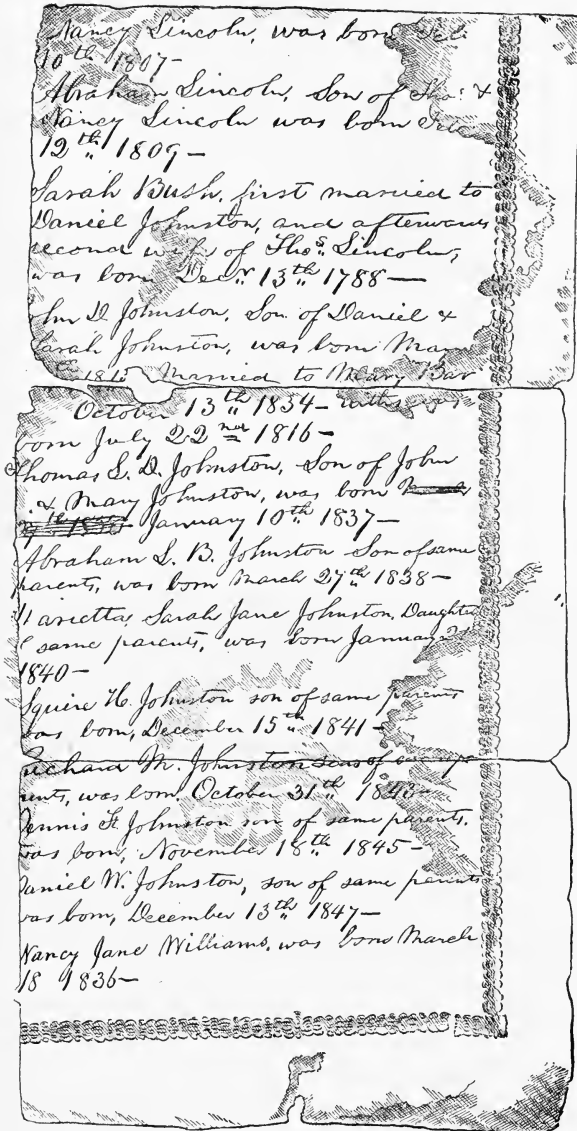 Nancy Lincoln, was born Feb.
10th 1807-
Abraham Lincoln, Son of Thos. &
Nancy Lincoln was born Feb
12th 1809-
Sarah Bush, first married to
Daniel Johnston, and afterwards
second wife of Thos. Lincoln,
was born Decr. 13th 1788-
ohn D Johnston, Son of Daniel &
Sarah Johnston, was born May
Married to Mary Bar
October 13th 1834- was
born July 22nd 1816-
Thomas L. D. Johnston, Son of John
& Mary Johnston, was born
January 10th 1837-
Abraham L. B. Johnston Son of same
parents, was born March 27th 1838-
Marietta, Sarah Jane Johnston, Daughter
same parents, was born January
1840-
Squire H. Johnston son of same parents
was born, December 15th 1841-
Richard M. Johnston son of
rents, was born. October 31th 1843-
Dennis F. Johnston son of same parents.
was born, November 18th 1845-
Daniel W. Johnston, son of same parents
was born, December 13th 1847-
Nancy Jane Williams, was born March
18 1836-